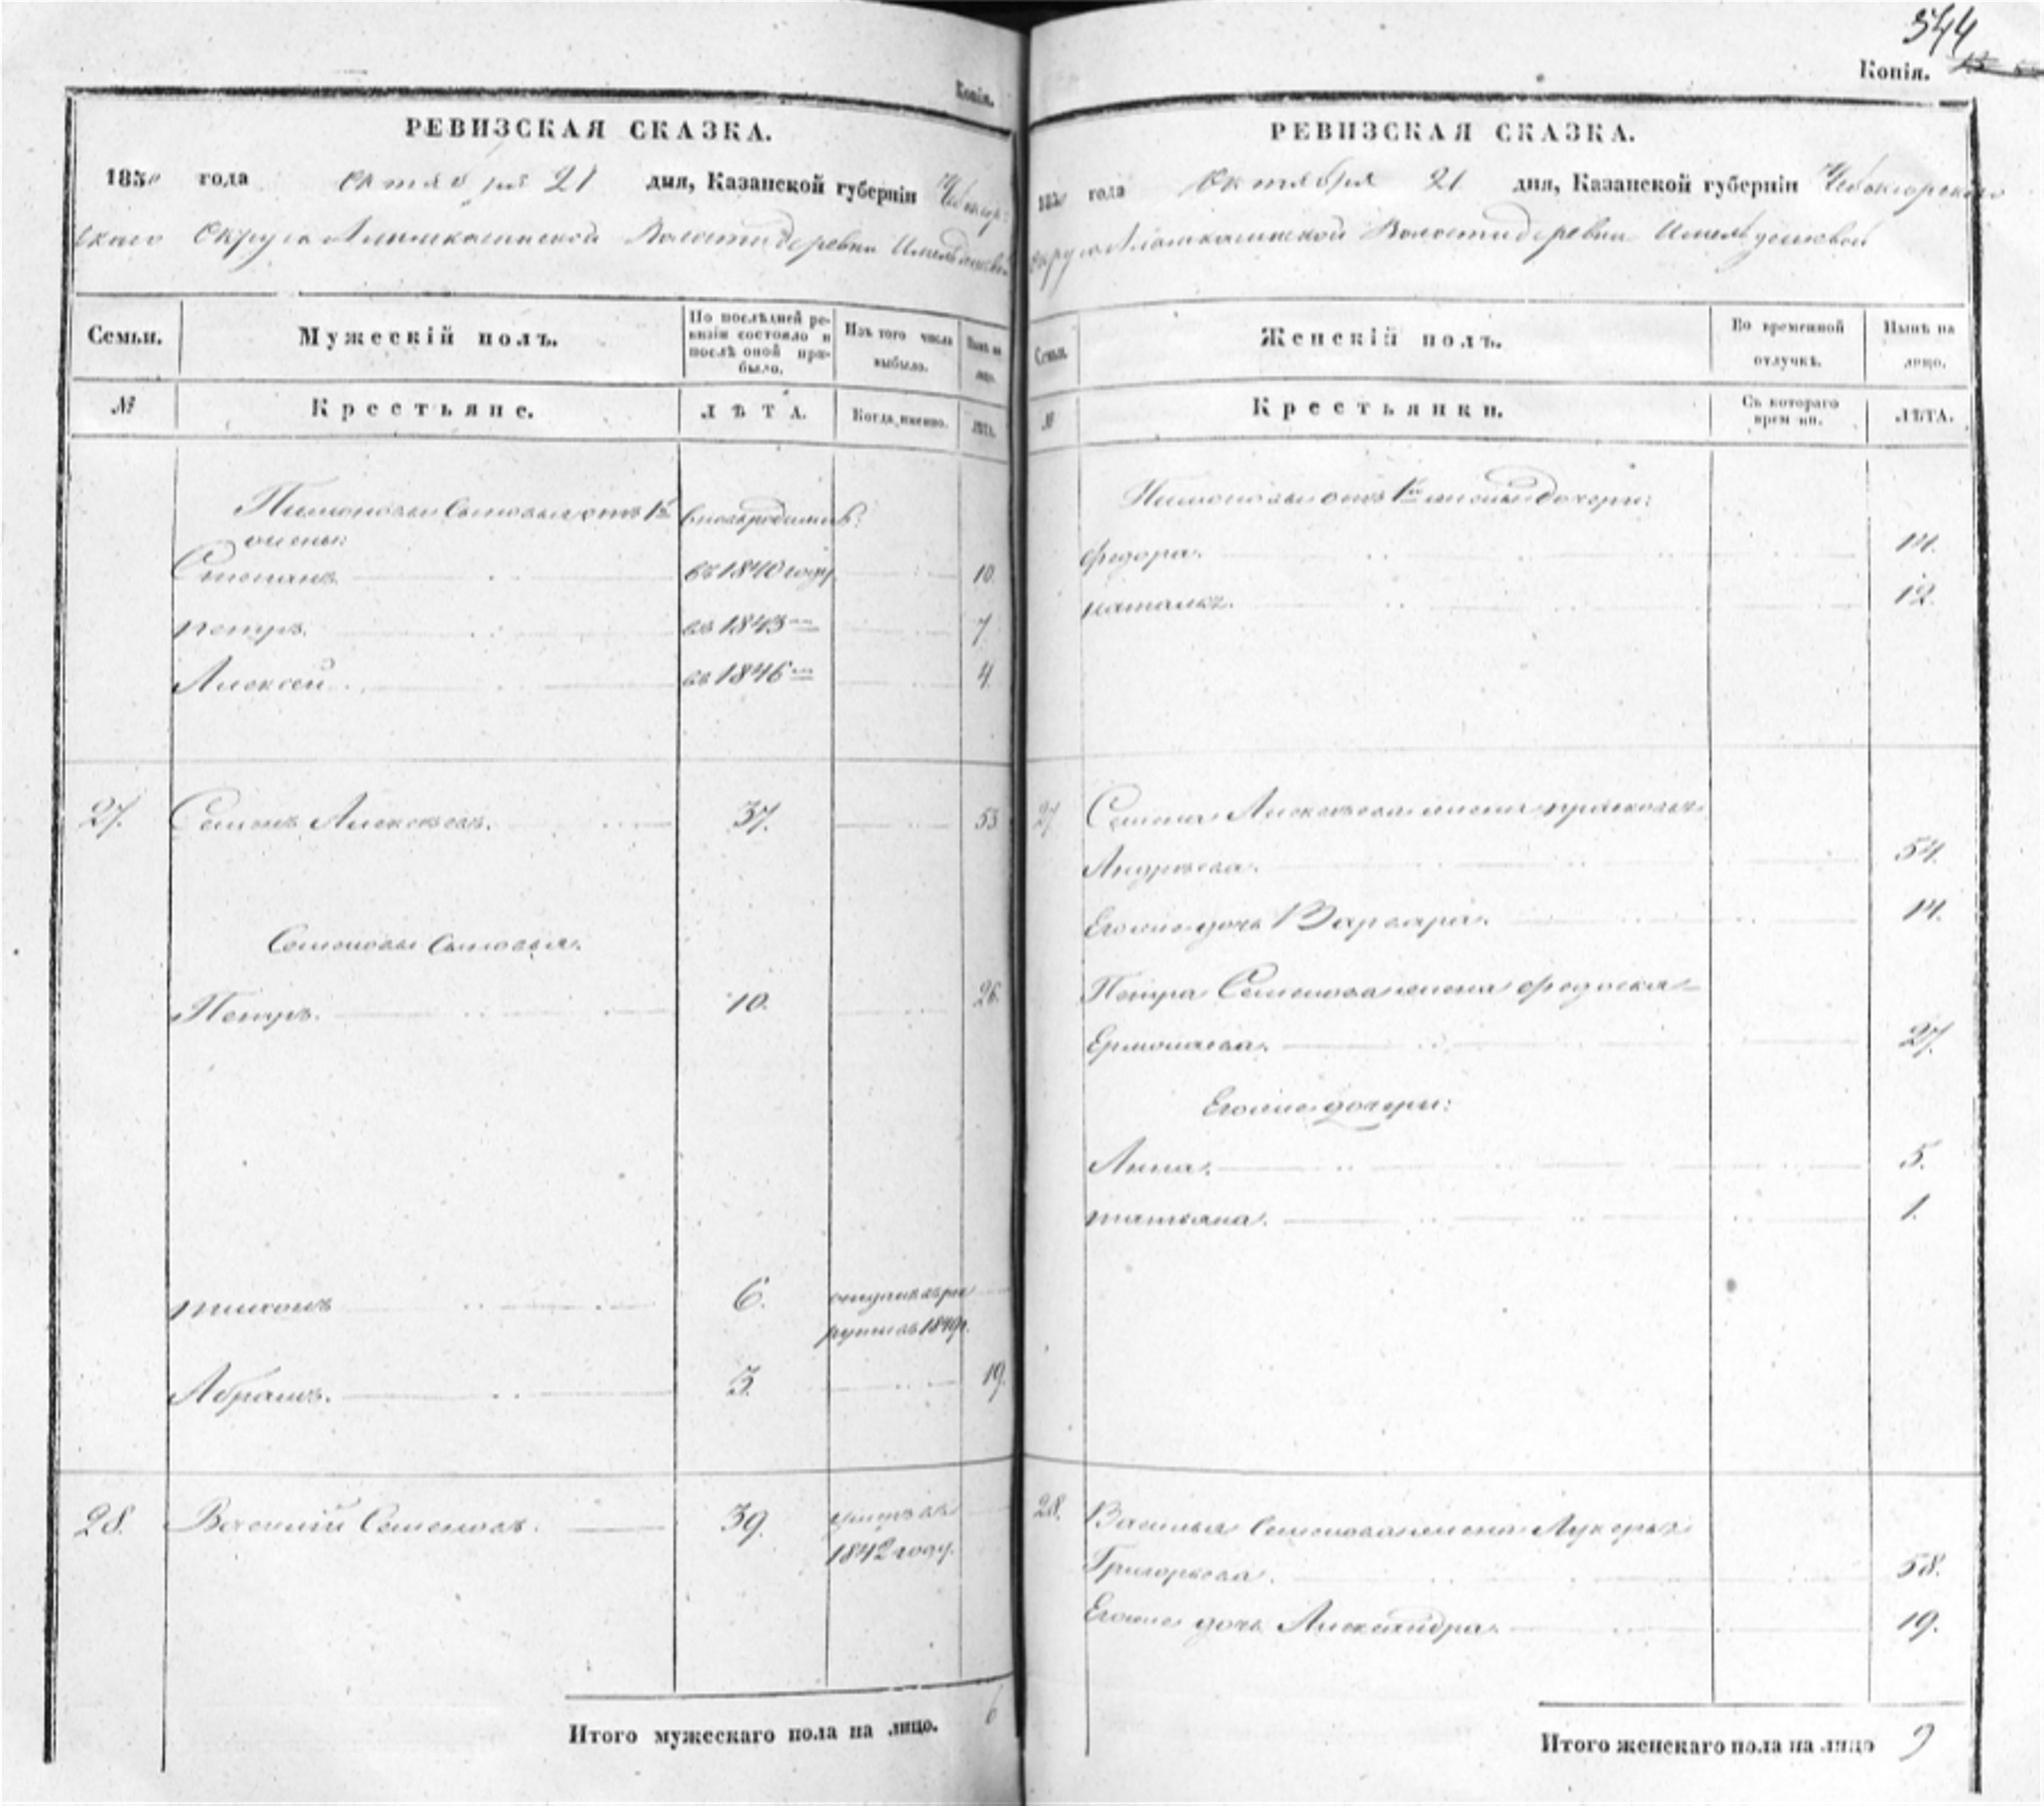 Копія.
РЕВИЗСКАЯ СКАЗКА.
1850 года Октября 21 дня, Казанской губерніи Чебоксар-
скаго Округа Алымкасинской Волости деревни
Семьи. Мужескій полъ. По послѣдней ре- визіи состояло и послѣ оной при- было. Изъ того числа выбыло. Нынѣ на лицо.
№ Крестьяне. ЛѢТА. Когда именно. ЛѢТА.
сыновья отъ 1й
жены:
Степанъ. въ 1840 году 10.
петръ. въ 1843 7
Алексей. въ 1846 4.
27. Семенъ Алексѣевъ. 37. 53
Семеновы сыновья.
Петръ. 10. 26.
тихонъ 6. отданъ въ ре
круты въ 1849 г.
Абрамъ. 3. 19.
28. Василий Семеновъ. 39. умеръ въ
1842 году.
Итого мужескаго пола на лицо. 6
544
Копія.
РЕВИЗСКАЯ СКАЗКА.
1850 года Октября 21 дня, Казанской губерніи Чебоксарскаго
округа Алымкасинской Волости деревни
Семьи. Женскій полъ. Во временной отлучкѣ. Нынѣ на лицо.
№ Крестьянки. Съ котораго времени. ЛѢТА.
отъ 1й жены дочери:
федора. 14.
наталья. 12.
27 Семена Алексѣева жена прасковья
Андрѣева. 54.
Егоже дочь Варвара. 14.
Петра Семенова жена федосья
Ермолаева. 27.
Егоже дочери:
Анна. 5.
татьяна. 1.
28. Василья Семенова жена Лукерья
Григорьева. 58.
Егоже дочь Александра. 19.
Итого женскаго пола на лицо 9